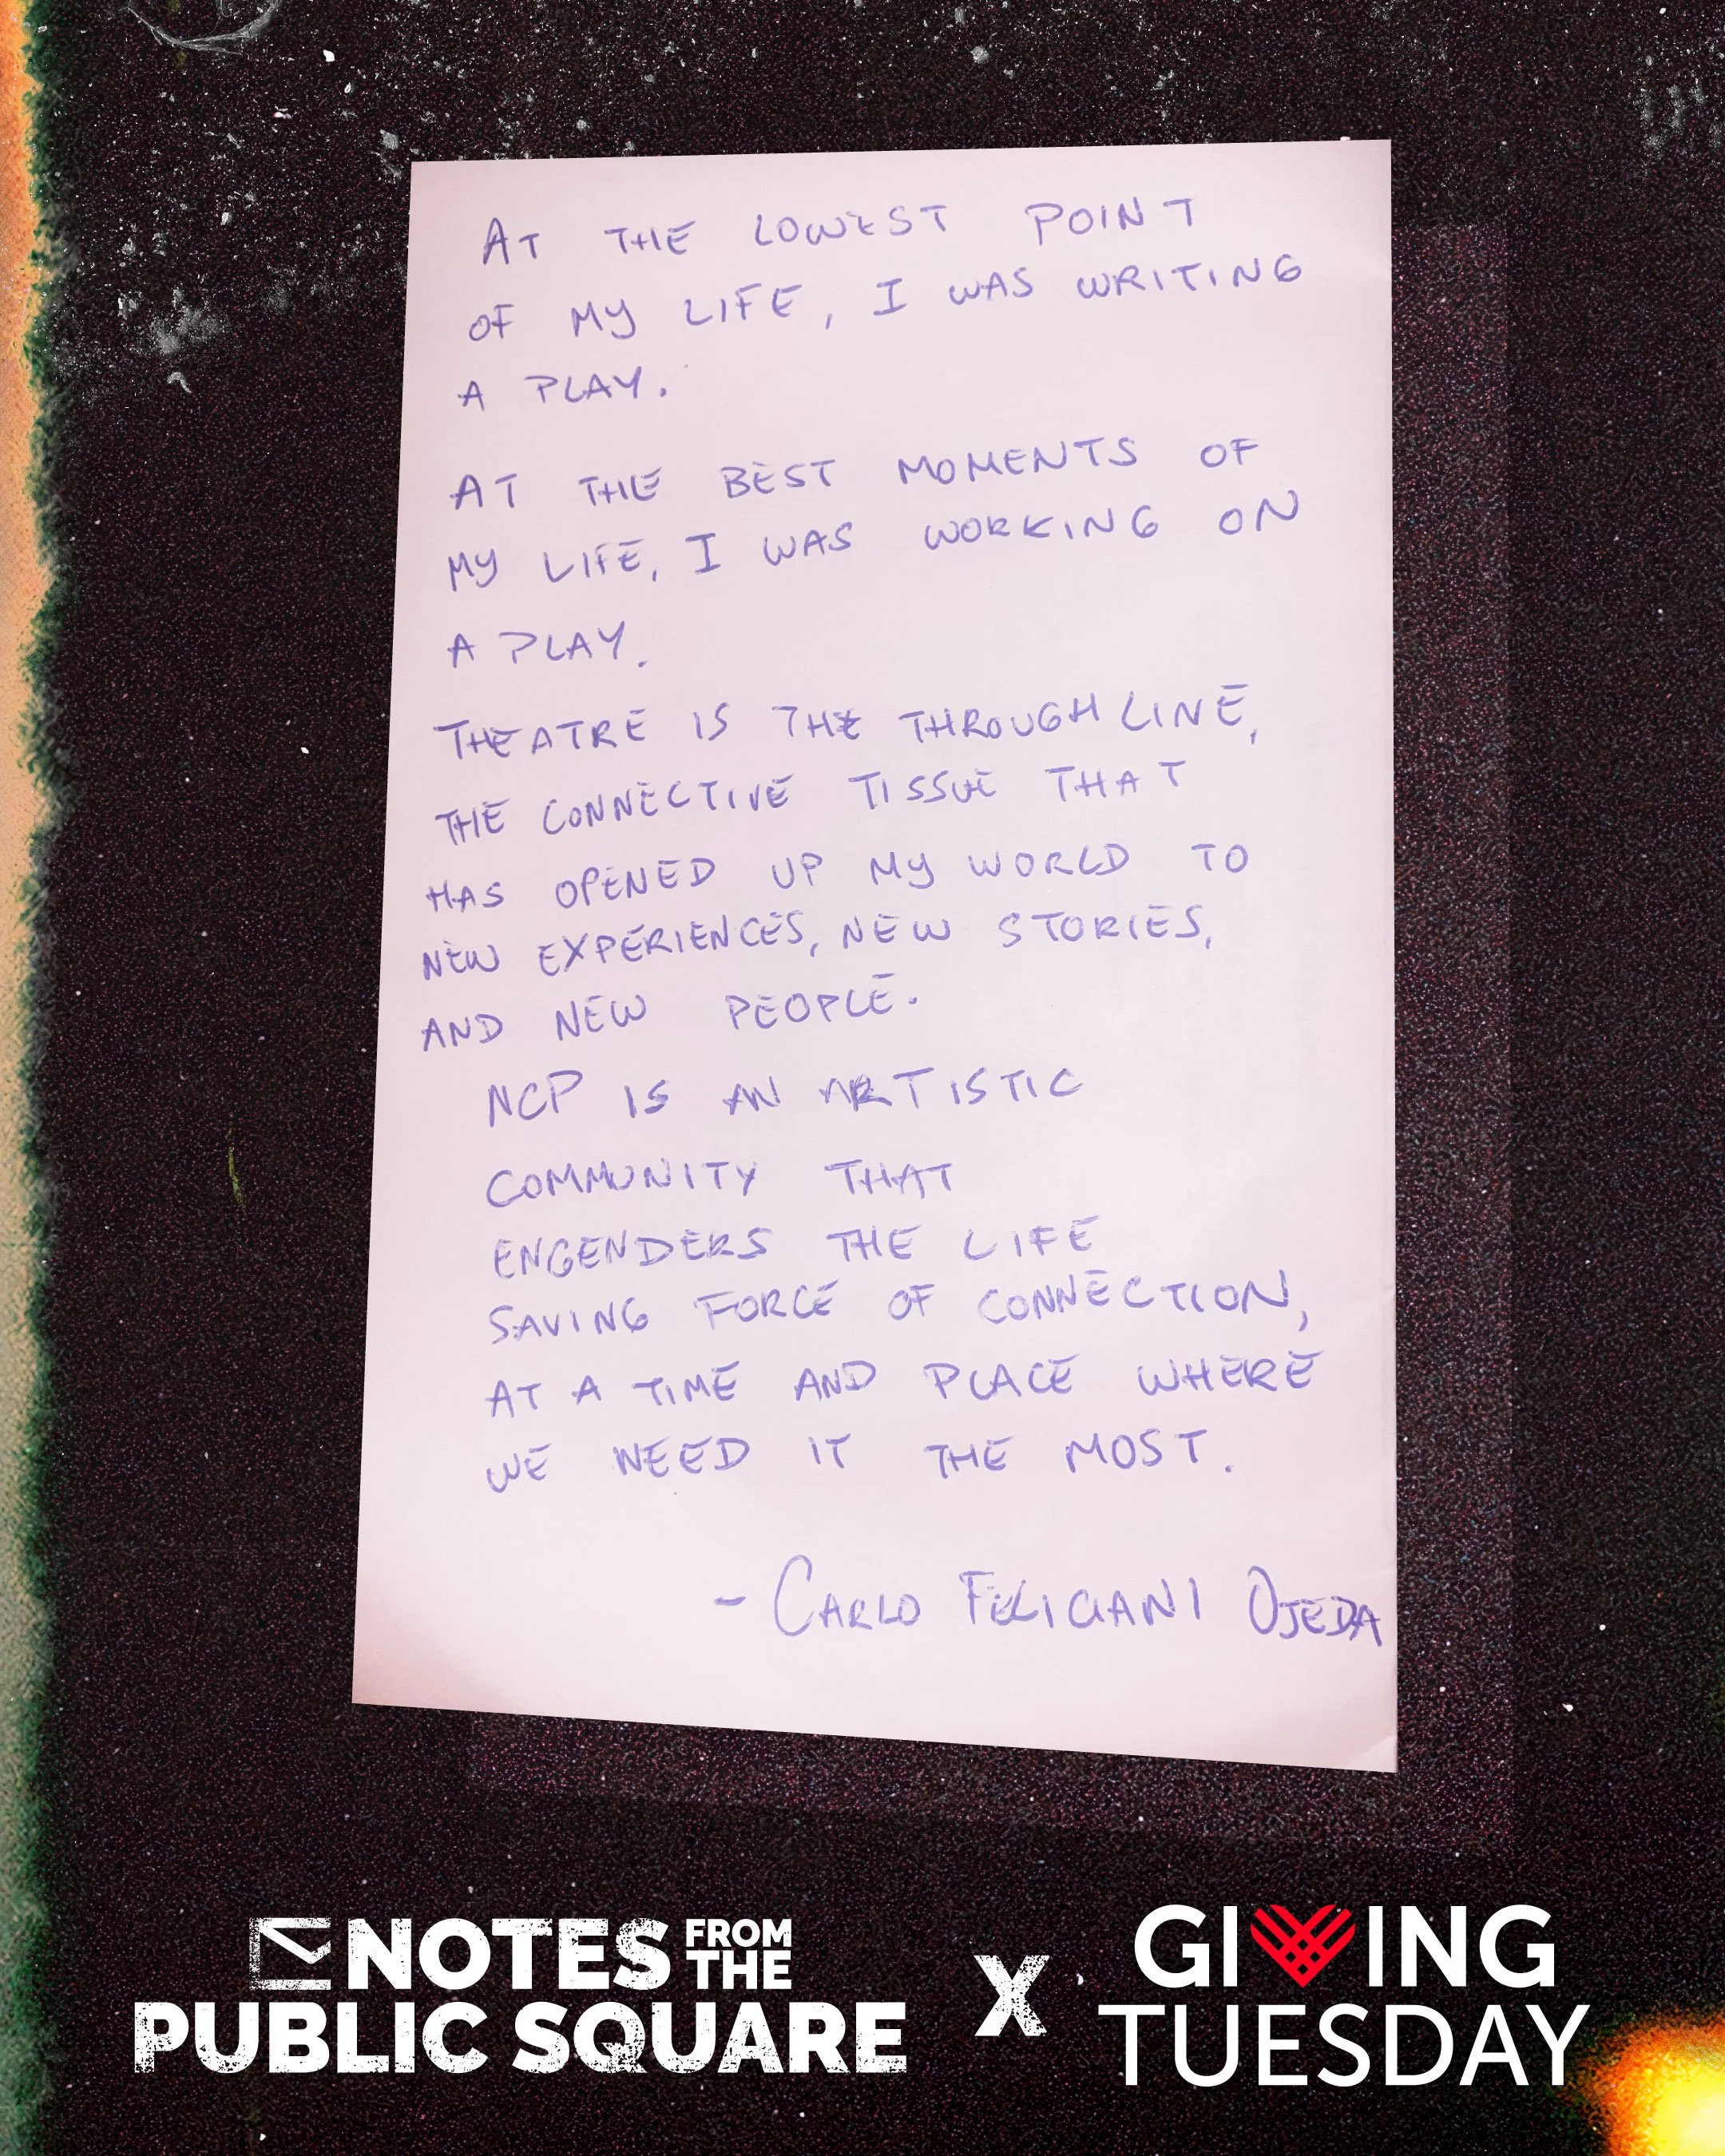 AT THE LOWEST POINT
OF MY LIFE, I WAS WRITING
A PLAY.
AT THE BEST MOMENTS OF
MY LIFE, I WAS WORKING ON
A PLAY.
THEATRE IS THE THROUGH LINE,
THE CONNECTIVE TISSUE THAT
HAS OPENED UP MY WORLD TO
NEW EXPERIENCES, NEW STORIES,
AND NEW PEOPLE.
NCP IS AN ARTISTIC
COMMUNITY THAT
ENGENDERS THE LIFE
SAVING FORCE OF CONNECTION,
AT A TIME AND PLACE WHERE
WE NEED IT THE MOST.
- CARLO FELICIANI OJEDA
NOTES FROM THE
PUBLIC SQUARE
X
GIVING
TUESDAY